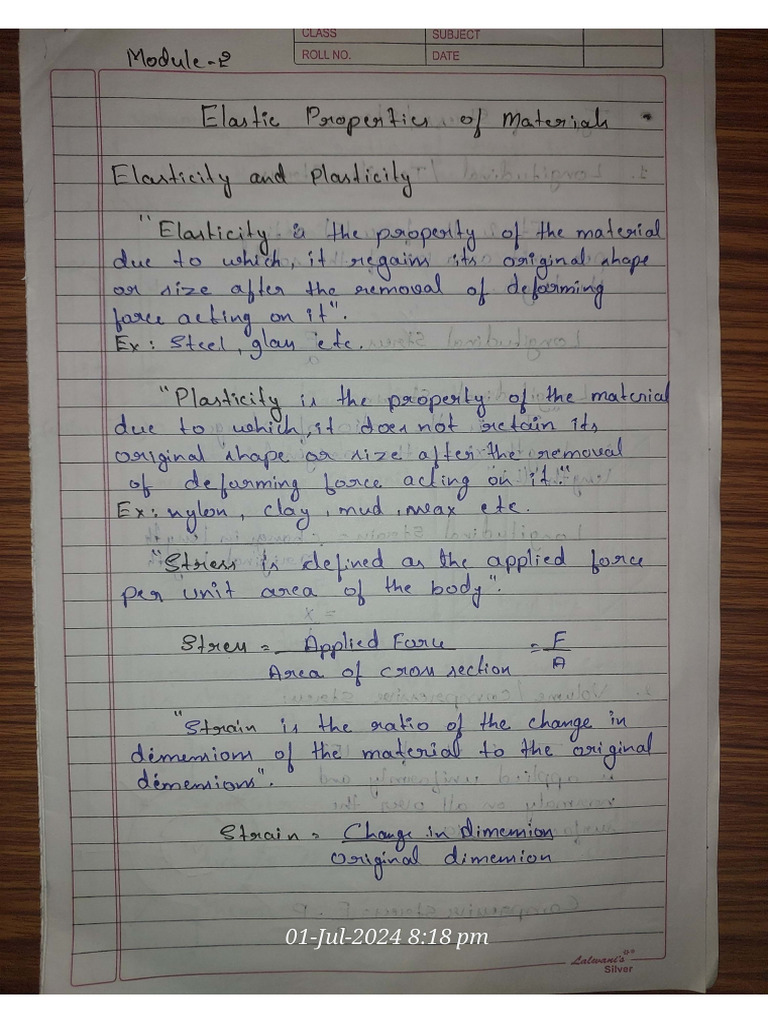 CLASS SUBJECT
ROLL NO. DATE
Module-2
Elastic Properties of Materials
Elasticity and Plasticity
"Elasticity is the property of the material
due to which, it regains its original shape
or size after the removal of deforming
force acting on it".
Ex: Steel, glass etc.
"Plasticity is the property of the material
due to which, it does not retain its
original shape or size after the removal
of deforming force acting on it."
Ex: nylon, clay, mud, wax etc.
"Stress is defined as the applied force
per unit area of the body".
Stress = Applied Force = F
Area of cross section A
"Strain is the ratio of the change in
dimensions of the material to the original
dimensions".
Strain = Change in dimension
Original dimension
01-Jul-2024 8:18 pm
Lalwani's
Silver